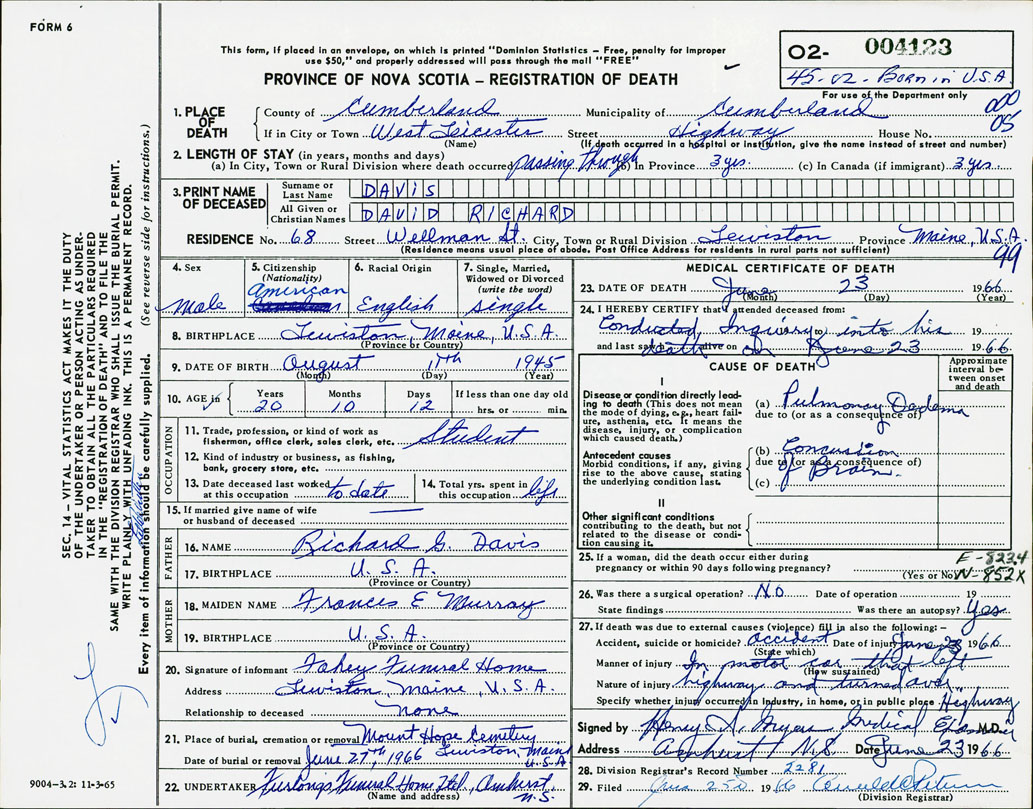 FORM 6
This form, if placed in an envelope, on which is printed "Dominion Statistics – Free, penalty for improper
use $50," and properly addressed will pass through the mail "FREE"
PROVINCE OF NOVA SCOTIA – REGISTRATION OF DEATH
O2- 004123
45-02- Born in U.S.A.
For use of the Department only
000
05
1. PLACE OF DEATH County of Cumberland Municipality of Cumberland
If in City or Town West Leicester Street Highway House No.
(Name) (If death occurred in a hospital or institution, give the name instead of street and number)
2. LENGTH OF STAY (in years, months and days)
(a) In City, Town or Rural Division where death occurred passing through (b) In Province 3 yrs. (c) In Canada (if immigrant) 3 yrs.
3. PRINT NAME OF DECEASED Surname or Last Name DAVIS
All Given or Christian Names DAVID RICHARD
RESIDENCE No. 68 Street Wellman St. City, Town or Rural Division Lewiston Province Maine, U.S.A.
(Residence means usual place of abode. Post Office Address for residents in rural parts not sufficient)
99
4. Sex Male
5. Citizenship (Nationality) American Canadian
6. Racial Origin English
7. Single, Married, Widowed or Divorced (write the word) single
8. BIRTHPLACE Lewiston, Maine, U.S.A.
(Province or Country)
9. DATE OF BIRTH August 11th 1945
(Month) (Day) (Year)
10. AGE in Years 20 Months 10 Days 12 If less than one day old hrs. or min.
OCCUPATION
11. Trade, profession, or kind of work as fisherman, office clerk, sales clerk, etc. Student
12. Kind of industry or business, as fishing, bank, grocery store, etc.
13. Date deceased last worked at this occupation to date 14. Total yrs. spent in this occupation life
15. If married give name of wife or husband of deceased
FATHER
16. NAME Richard G. Davis
17. BIRTHPLACE U.S.A.
(Province or Country)
MOTHER
18. MAIDEN NAME Frances E Murray
19. BIRTHPLACE U.S.A.
(Province or Country)
20. Signature of informant Fahey Funeral Home
Address Lewiston, Maine, U.S.A.
Relationship to deceased none
21. Place of burial, cremation or removal Mount Hope Cemetery
Date of burial or removal June 27th, 1966 Lewiston, Maine U.S.A
22. UNDERTAKER Furlongs Funeral Home Ltd., Amherst N.S.
(Name and address)
MEDICAL CERTIFICATE OF DEATH
23. DATE OF DEATH June 23 1966
(Month) (Day) (Year)
24. I HEREBY CERTIFY that I attended deceased from:
Conducted Inquiry into his 19
and last saw alive on death on June 23 1966
CAUSE OF DEATH
Approximate interval between onset and death
I
Disease or condition directly leading to death (This does not mean the mode of dying, e.g., heart failure, asthenia, etc. It means the disease, injury, or complication which caused death.)
(a) Pulmonary Oedema
due to (or as a consequence of)
Antecedent causes
Morbid conditions, if any, giving rise to the above cause, stating the underlying condition last.
(b) Concussion
due to (or as a consequence of)
of Brain
(c)
II
Other significant conditions contributing to the death, but not related to the disease or condition causing it.
25. If a woman, did the death occur either during pregnancy or within 90 days following pregnancy?
(Yes or No)
E-823.4
N-852X
26. Was there a surgical operation? No Date of operation 19
State findings Was there an autopsy? Yes
27. If death was due to external causes (violence) fill in also the following: –
Accident, suicide or homicide? accident Date of injury June 23 1966
(State which)
Manner of injury In motor car that left
(How sustained)
Nature of injury highway and turned over
Specify whether injury occurred in industry, in home, or in public place Highway
Signed by Medical Examiner M.D.
Address Amherst N.S. Date June 23 1966
28. Division Registrar's Record Number 2281
29. Filed 1966
(Division Registrar)
SEC. 14 – VITAL STATISTICS ACT MAKES IT THE DUTY
OF THE UNDERTAKER OR PERSON ACTING AS UNDER-
TAKER TO OBTAIN ALL THE PARTICULARS REQUIRED
IN THE "REGISTRATION OF DEATH" AND TO FILE THE
SAME WITH THE DIVISION REGISTRAR WHO SHALL ISSUE THE BURIAL PERMIT.
WRITE PLAINLY WITH UNFADING INK. THIS IS A PERMANENT RECORD.
Every item of information should be carefully supplied. (See reverse side for instructions.)
9004–3.2: 11-3-65